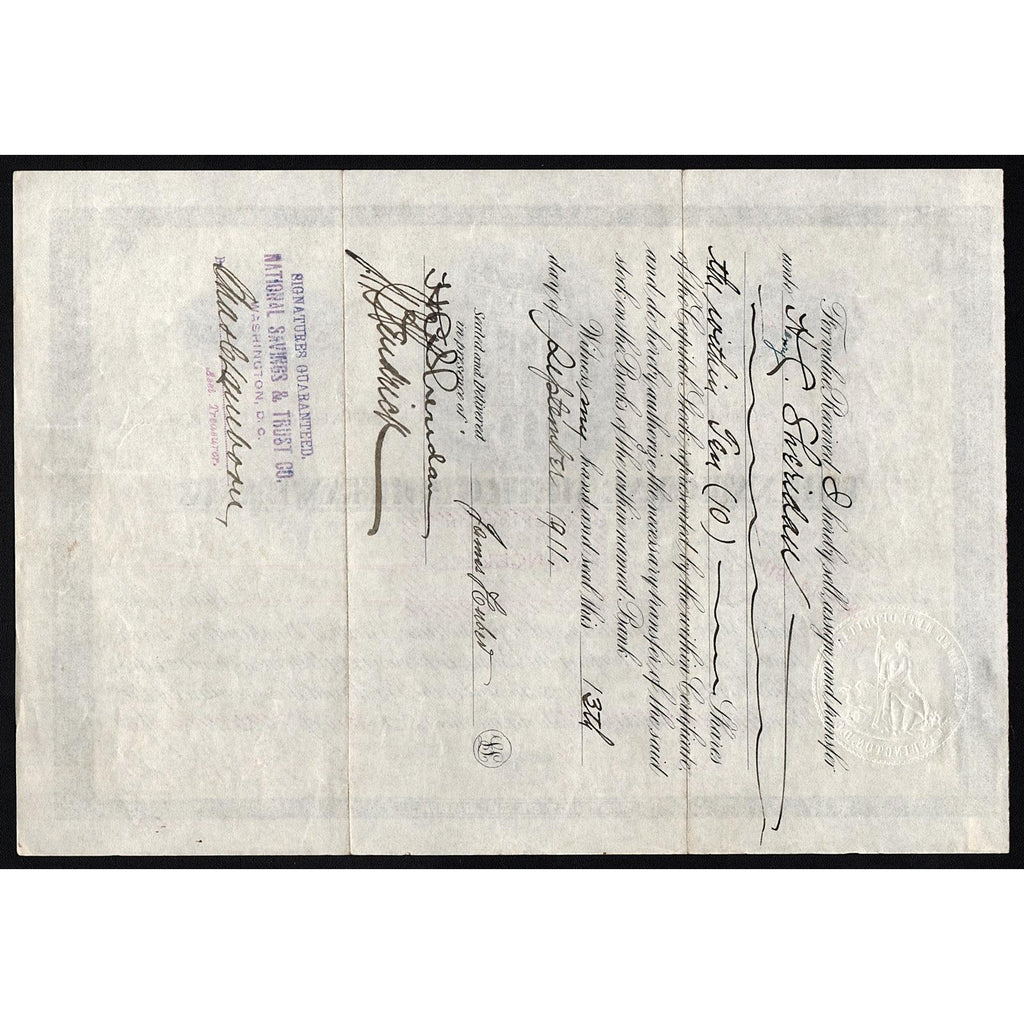 For value Received I hereby sell, assign and transfer
unto Henry C. Sheridan
the within Ten (10) Shares
of the Capital Stock represented by the within Certificate,
and do hereby authorize the necessary transfer of the said
stock on the Books of the within named Bank.
Witness my hand and seal this 13th
day of September 1911.
Sealed and Delivered
in presence of
James
LS
Sheridan
SIGNATURES GUARANTEED.
NATIONAL SAVINGS & TRUST CO.
WASHINGTON, D. C.
By
Asst. Treasurer.